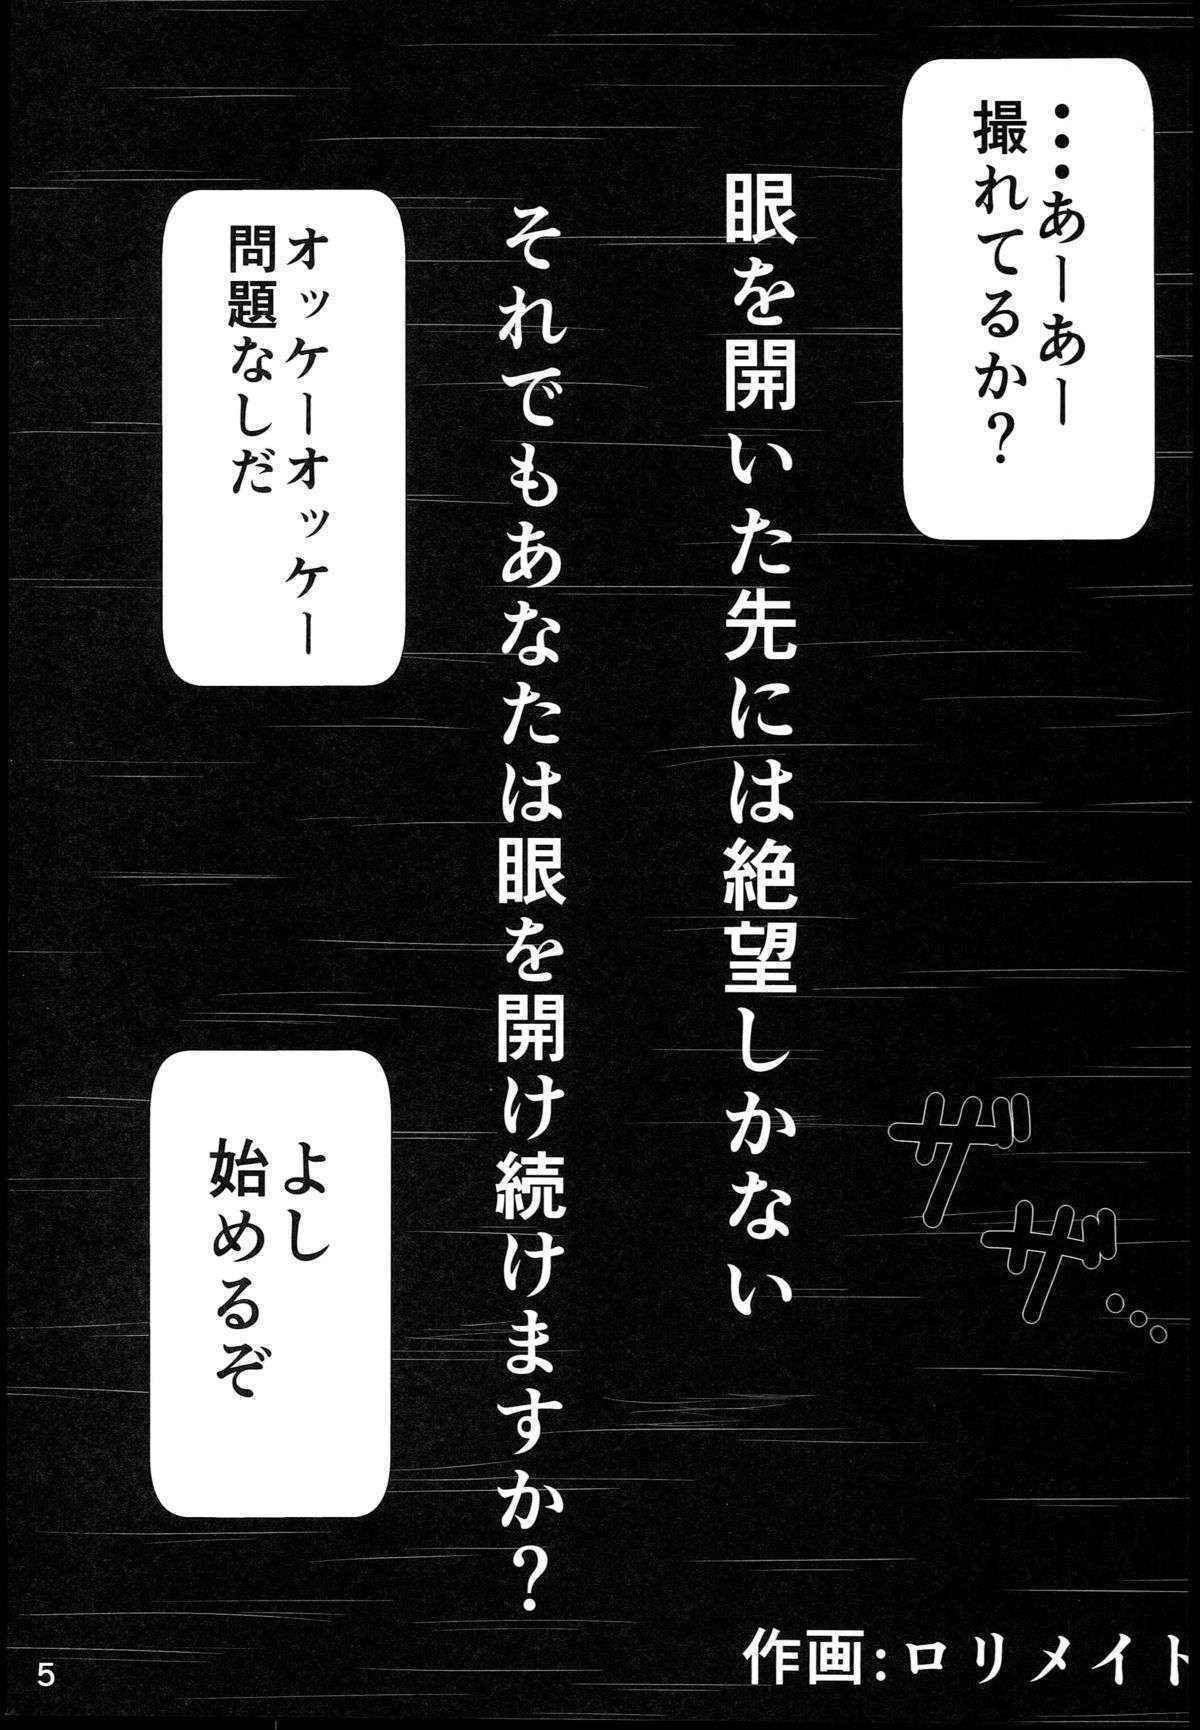 ・・・あーあー
撮れてるか？
眼を開いた先には絶望しかない
それでもあなたは眼を開け続けますか？
オッケーオッケー
問題なしだ
ザザ…
よし
始めるぞ
作画:ロリメイト
5